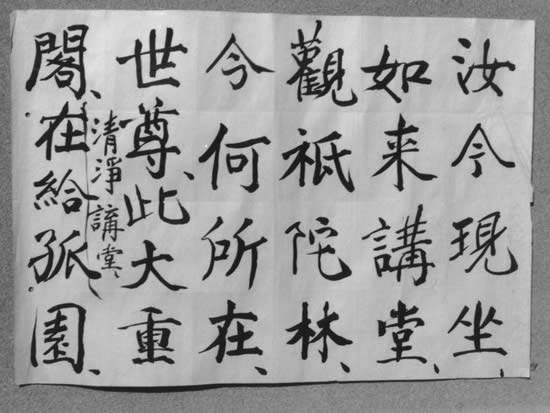 汝今現坐、
如来講堂、
觀祇陀林、
今何所在、
世尊、此大重
清淨講堂、
閣、在給孤園、